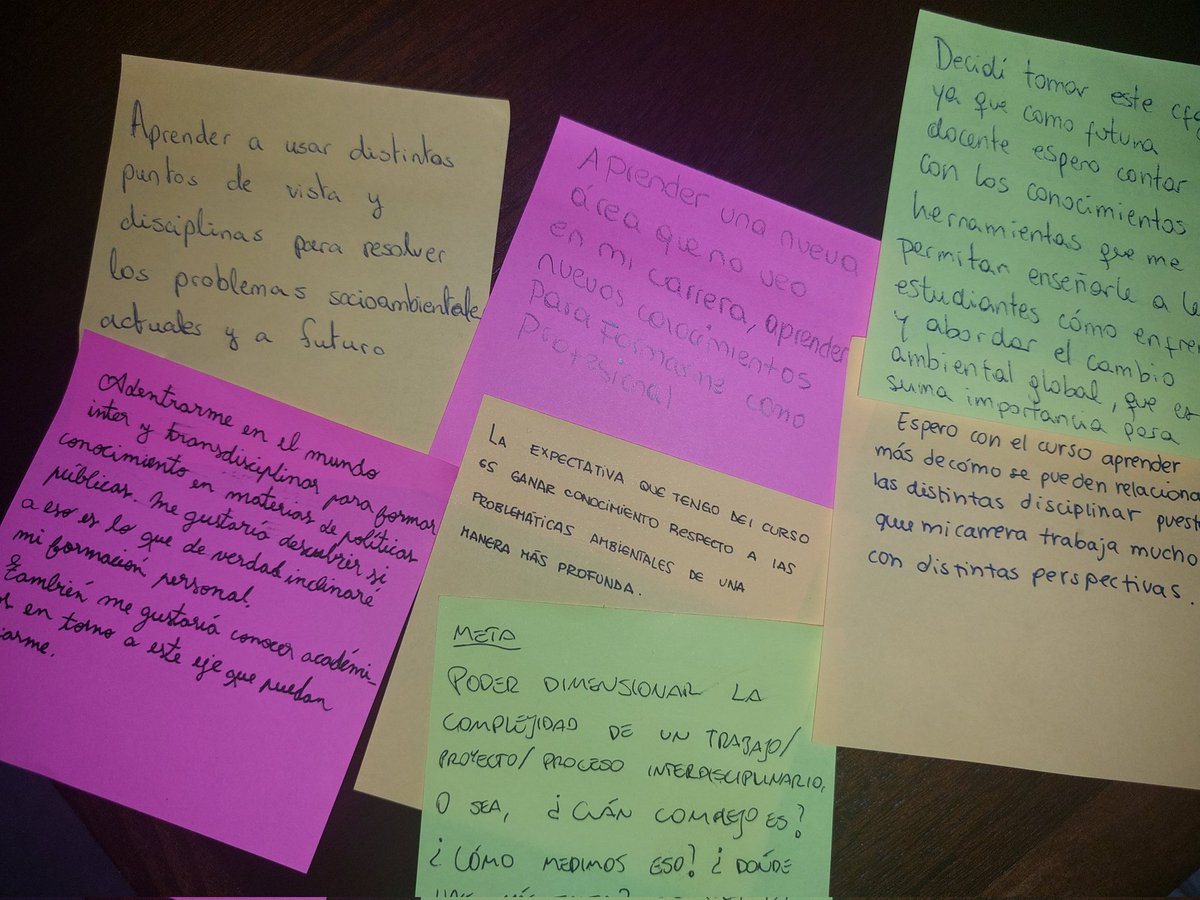 Aprender a usar distintas
puntos de vista y
disciplinas para resolver
los problemas socioambientale
actuales y a futuro
Aprender una nueva
área que no veo
en mi carrera, aprender
nuevos conocimientos
para Formarme como
profesional
Decidí tomar este cfg
ya que como futura
docente espero contar
con los conocimientos
herramientas que me
permitan enseñarle a
estudiantes cómo
y abordar el cambio
ambiental global, que es
suma importancia para
Adentrarme en el mundo
inter y transdisciplinar para formar
conocimiento en materias de políticas
públicas. Me gustaría descubrir si
a eso es lo que de verdad inclinaré
mi formación personal.
También me gustaría conocer académi-
en torno a este eje que puedan
LA EXPECTATIVA QUE TENGO DEL CURSO
ES GANAR CONOCIMIENTO RESPECTO A LAS
PROBLEMÁTICAS AMBIENTALES DE UNA
MANERA MÁS PROFUNDA.
Espero con el curso aprender
más de cómo se pueden relaciona
las distintas disciplinar puest
que mi carrera trabaja mucho
con distintas perspectivas.
META
PODER DIMENSIONAR LA
COMPLEJIDAD DE UN TRABAJO/
PROYECTO/ PROCESO INTERDISCIPLINARIO,
O SEA, ¿CUÁN COMPLEJO ES?
¿CÓMO MEDIMOS ESO? ¿DÓNDE